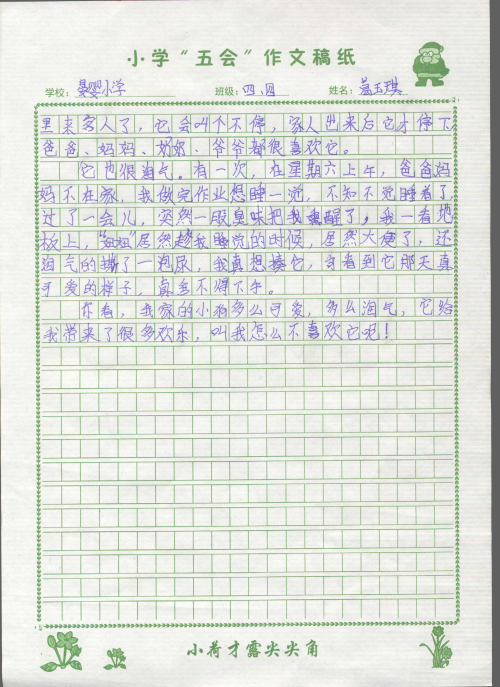 小学“五会”作文稿纸
学校：晏婴小学 班级：四、四 姓名：葛玉琪
里来客人了，它会叫个不停，家人出来后它才停下
爸爸、妈妈、奶奶、爷爷都很喜欢它。
它也很淘气。有一次，在星期六上午，爸爸妈
妈不在家，我做完作业想睡一觉，不知不觉睡着了，
过了一会儿，突然一股臭味把我熏醒了，我一看地
板上，“妞妞”居然趁我睡觉的时候，居然大便了，还
淘气的撒了一泡尿，我真想揍它，可看到它那天真
可爱的样子，真舍不得下手。
你看，我家的小狗多么可爱，多么淘气，它给
我带来了很多欢乐，叫我怎么不喜欢它呢！
小荷才露尖尖角